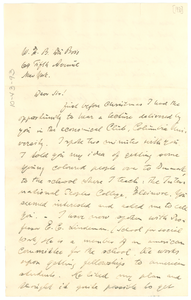 W. E. B. Du Bois
69 Fifth Avenue
New York.
Dear Sir!
Just before Christmas I had the
opportunity to hear a lecture delivered by
you in the economical Club, Columbia Uni-
versity. I spoke two minutes with you
I told you my idea of getting some
young colored people over to Denmark,
to the school where I teach, the Inter-
national People College, Elsinore. You
seemed interested and asked me to call
you. I have now spoken with Pro-
fessor E. C. Lindeman, School for social
work. He is a member of an american
Committee for the school. He works
upon getting fellowships to american
students. He liked my plan and
thought it quite possible to get